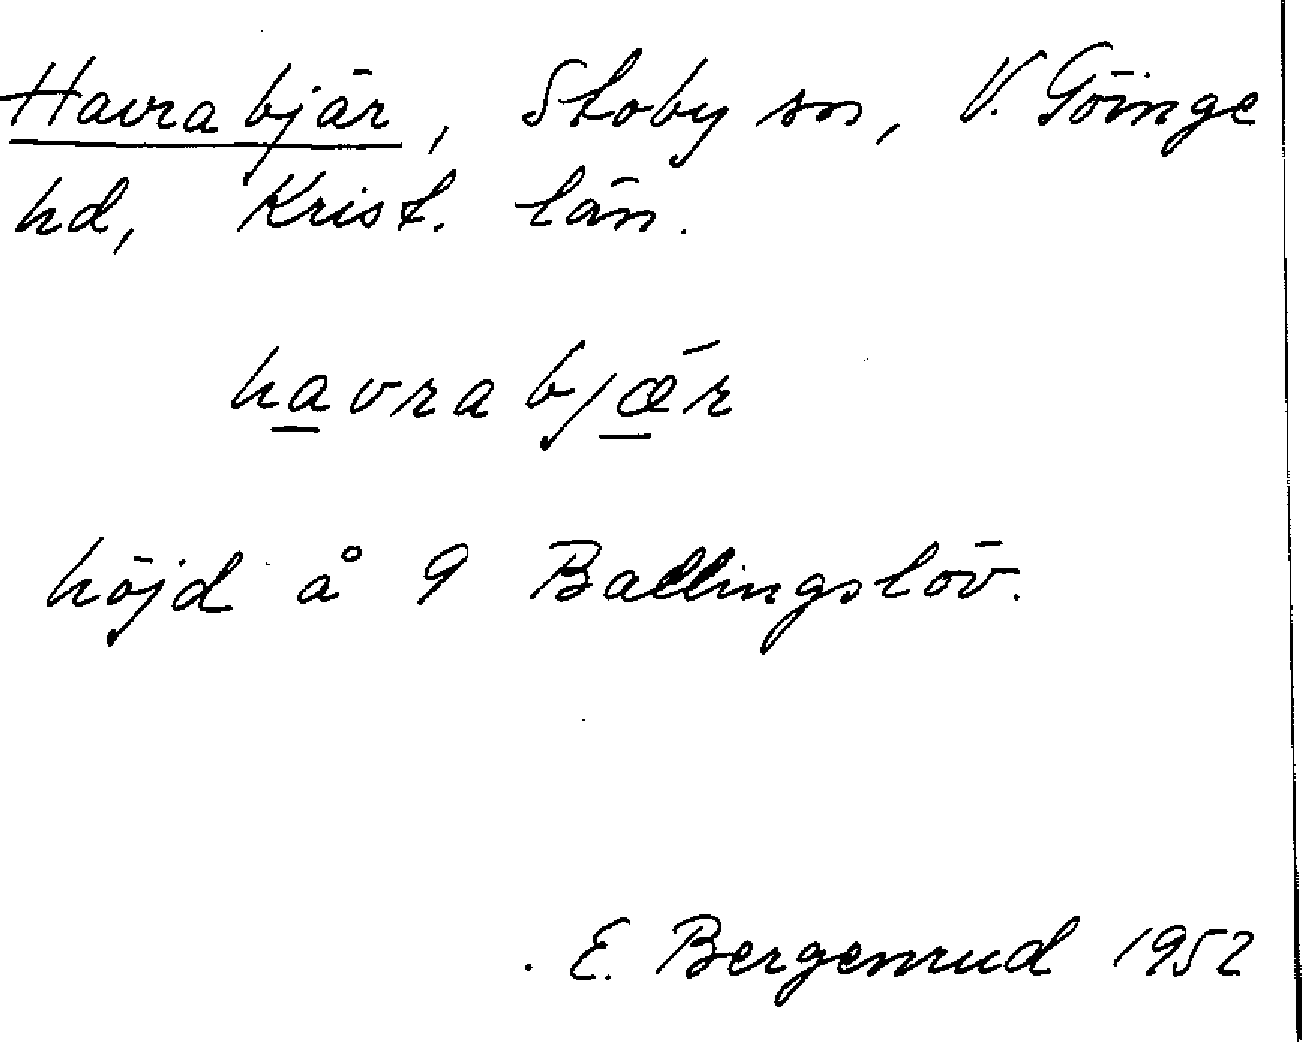 Havrabjär, Stoby sn, V. Göinge
hd, Krist. län.
havrabjǽr
höjd å 9 Ballingslöv.
E. Bergenrud 1952